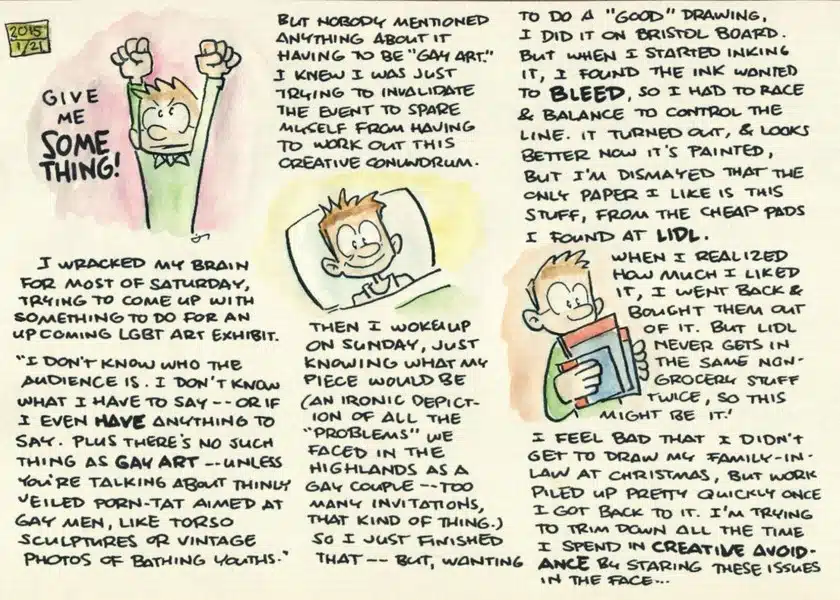 2015
1/21
GIVE
ME
SOME
THING!
I WRACKED MY BRAIN
FOR MOST OF SATURDAY,
TRYING TO COME UP WITH
SOMETHING TO DO FOR AN
UPCOMING LGBT ART EXHIBIT.
"I DON'T KNOW WHO THE
AUDIENCE IS. I DON'T KNOW
WHAT I HAVE TO SAY -- OR IF
I EVEN HAVE ANYTHING TO
SAY. PLUS THERE'S NO SUCH
THING AS GAY ART -- UNLESS
YOU'RE TALKING ABOUT THINLY
VEILED PORN-TAT AIMED AT
GAY MEN, LIKE TORSO
SCULPTURES OR VINTAGE
PHOTOS OF BATHING YOUTHS."
BUT NOBODY MENTIONED
ANYTHING ABOUT IT
HAVING TO BE "GAY ART."
I KNEW I WAS JUST
TRYING TO INVALIDATE
THE EVENT TO SPARE
MYSELF FROM HAVING
TO WORK OUT THIS
CREATIVE CONUNDRUM.
THEN I WOKE UP
ON SUNDAY, JUST
KNOWING WHAT MY
PIECE WOULD BE
(AN IRONIC DEPICT-
ION OF ALL THE
"PROBLEMS" WE
FACED IN THE
HIGHLANDS AS A
GAY COUPLE -- TOO
MANY INVITATIONS,
THAT KIND OF THING.)
SO I JUST FINISHED
THAT -- BUT, WANTING
TO DO A "GOOD" DRAWING,
I DID IT ON BRISTOL BOARD.
BUT WHEN I STARTED INKING
IT, I FOUND THE INK WANTED
TO BLEED, SO I HAD TO RACE
& BALANCE TO CONTROL THE
LINE. IT TURNED OUT, & LOOKS
BETTER NOW IT'S PAINTED,
BUT I'M DISMAYED THAT THE
ONLY PAPER I LIKE IS THIS
STUFF, FROM THE CHEAP PADS
I FOUND AT LIDL.
WHEN I REALIZED
HOW MUCH I LIKED
IT, I WENT BACK &
BOUGHT THEM OUT
OF IT. BUT LIDL
NEVER GETS IN
THE SAME NON-
GROCERY STUFF
TWICE, SO THIS
MIGHT BE IT!
I FEEL BAD THAT I DIDN'T
GET TO DRAW MY FAMILY-IN-
LAW AT CHRISTMAS, BUT WORK
PILED UP PRETTY QUICKLY ONCE
I GOT BACK TO IT. I'M TRYING
TO TRIM DOWN ALL THE TIME
I SPEND IN CREATIVE AVOID-
ANCE BY STARING THESE ISSUES
IN THE FACE...